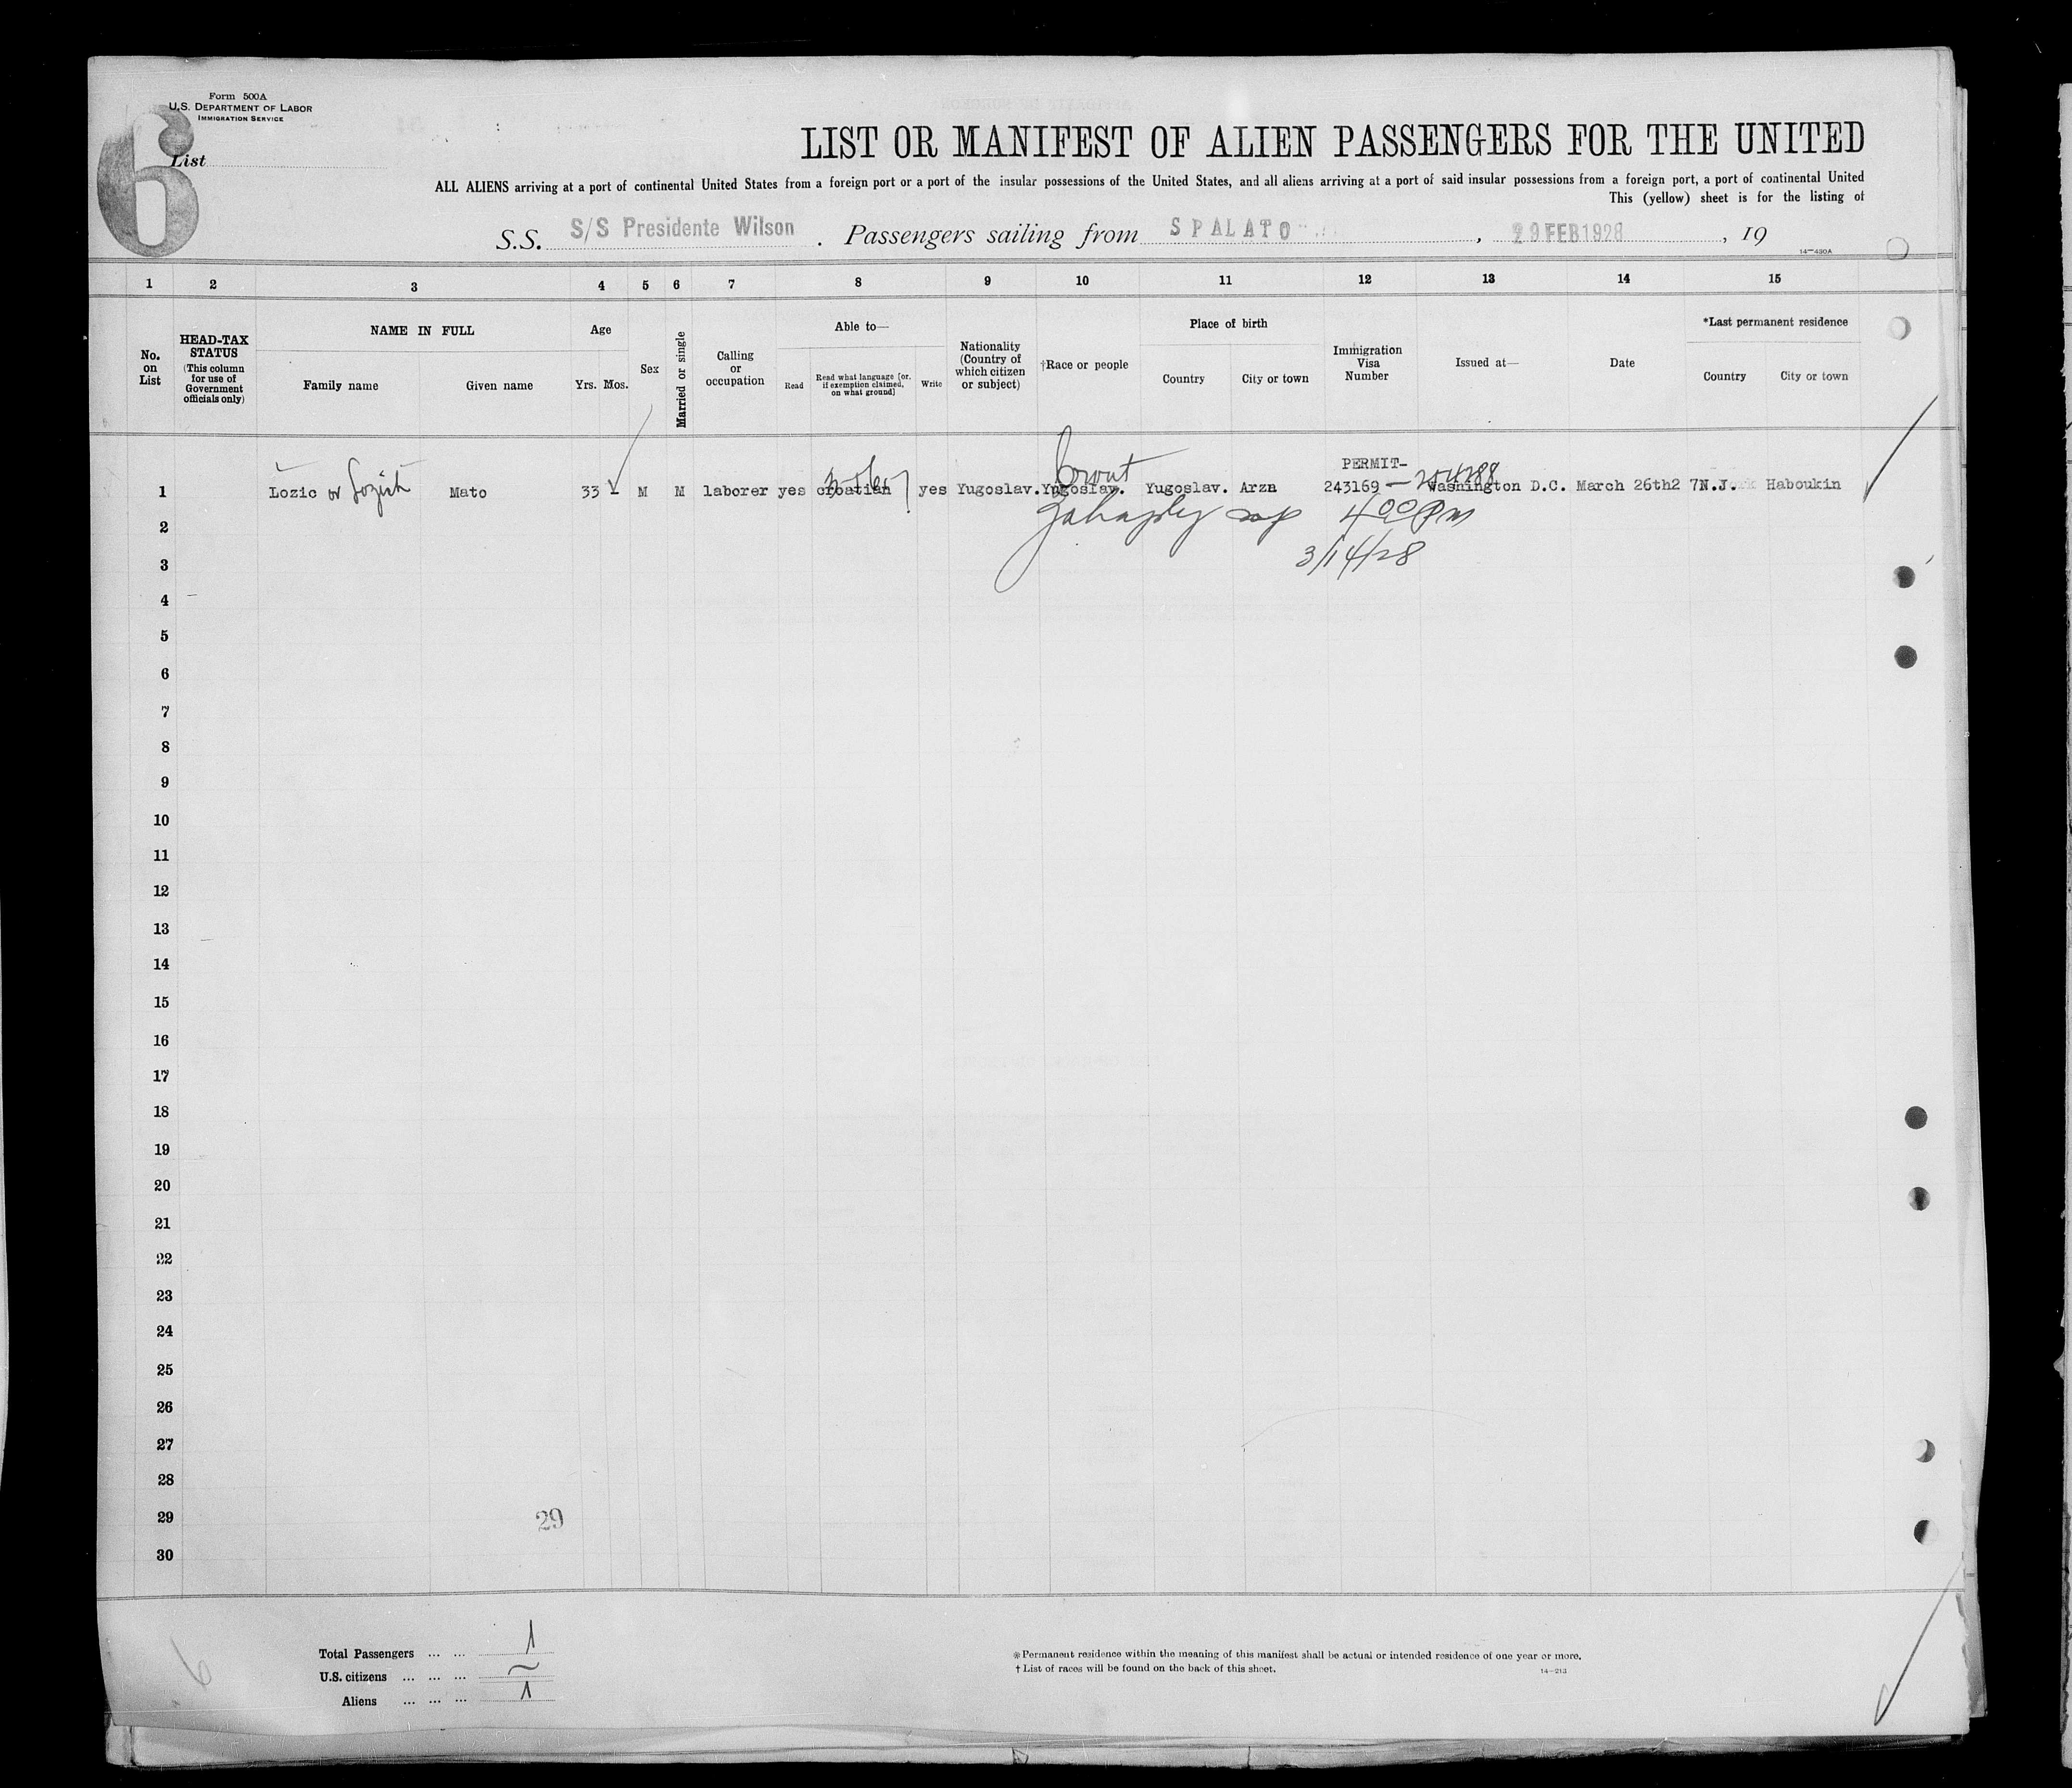 Form 500A
U.S. DEPARTMENT OF LABOR
IMMIGRATION SERVICE
6
List
LIST OR MANIFEST OF ALIEN PASSENGERS FOR THE UNITED
ALL ALIENS arriving at a port of continental United States from a foreign port or a port of the insular possessions of the United States, and all aliens arriving at a port of said insular possessions from a foreign port, a port of continental United
This (yellow) sheet is for the listing of
S.S. S/S Presidente Wilson . Passengers sailing from SPALATO , 29 FEB 1928 , 19
14-430A
1 2 3 4 5 6 7 8 9 10 11 12 13 14 15
No. on List
HEAD-TAX STATUS (This column for use of Government officials only)
NAME IN FULL
Family name Given name
Age
Yrs. Mos.
Sex
Married or single
Calling or occupation
Able to—
Read
Read what language [or, if exemption claimed, on what ground]
Write
Nationality (Country of which citizen or subject)
†Race or people
Place of birth
Country City or town
Immigration Visa Number
Issued at—
Date
*Last permanent residence
Country City or town
PERMIT-
1 Lozic or Lozich Mato 33 M M laborer yes croatian yes Yugoslav. Yugoslav. Croat Yugoslav. Arzn 243169 — Washington D.C. March 26th2 7 N.J. Haboukin
2 4 00 PM
3 3/14/28
4
5
6
7
8
9
10
11
12
13
14
15
16
17
18
19
20
21
22
23
24
25
26
27
28
29 29
30
Total Passengers ... ... 1
U.S. citizens ... ... ... ~
Aliens ... ... ... 1
6
*Permanent residence within the meaning of this manifest shall be actual or intended residence of one year or more.
† List of races will be found on the back of this sheet. 14-213